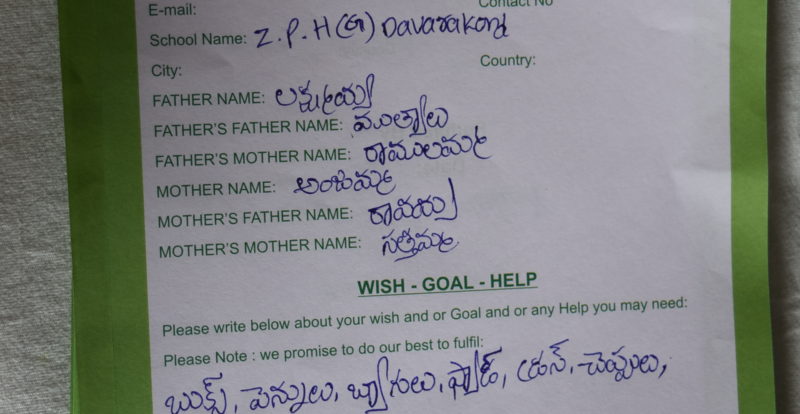 E-mail: Contact No
School Name: Z.P.H(G) Davarakond
City: Country:
FATHER NAME: లక్ష్మయ్య
FATHER'S FATHER NAME: ముత్యాలు
FATHER'S MOTHER NAME: రాములమ్మ
MOTHER NAME: అంజమ్మ
MOTHER'S FATHER NAME: రామయ్య
MOTHER'S MOTHER NAME: సత్తెమ్మ
WISH - GOAL - HELP
Please write below about your wish and or Goal and or any Help you may need:
Please Note : we promise to do our best to fulfil:
బుక్స్, పెన్నులు, బ్యాగులు, ప్యాడ్, డ్రస్, చెప్పులు,